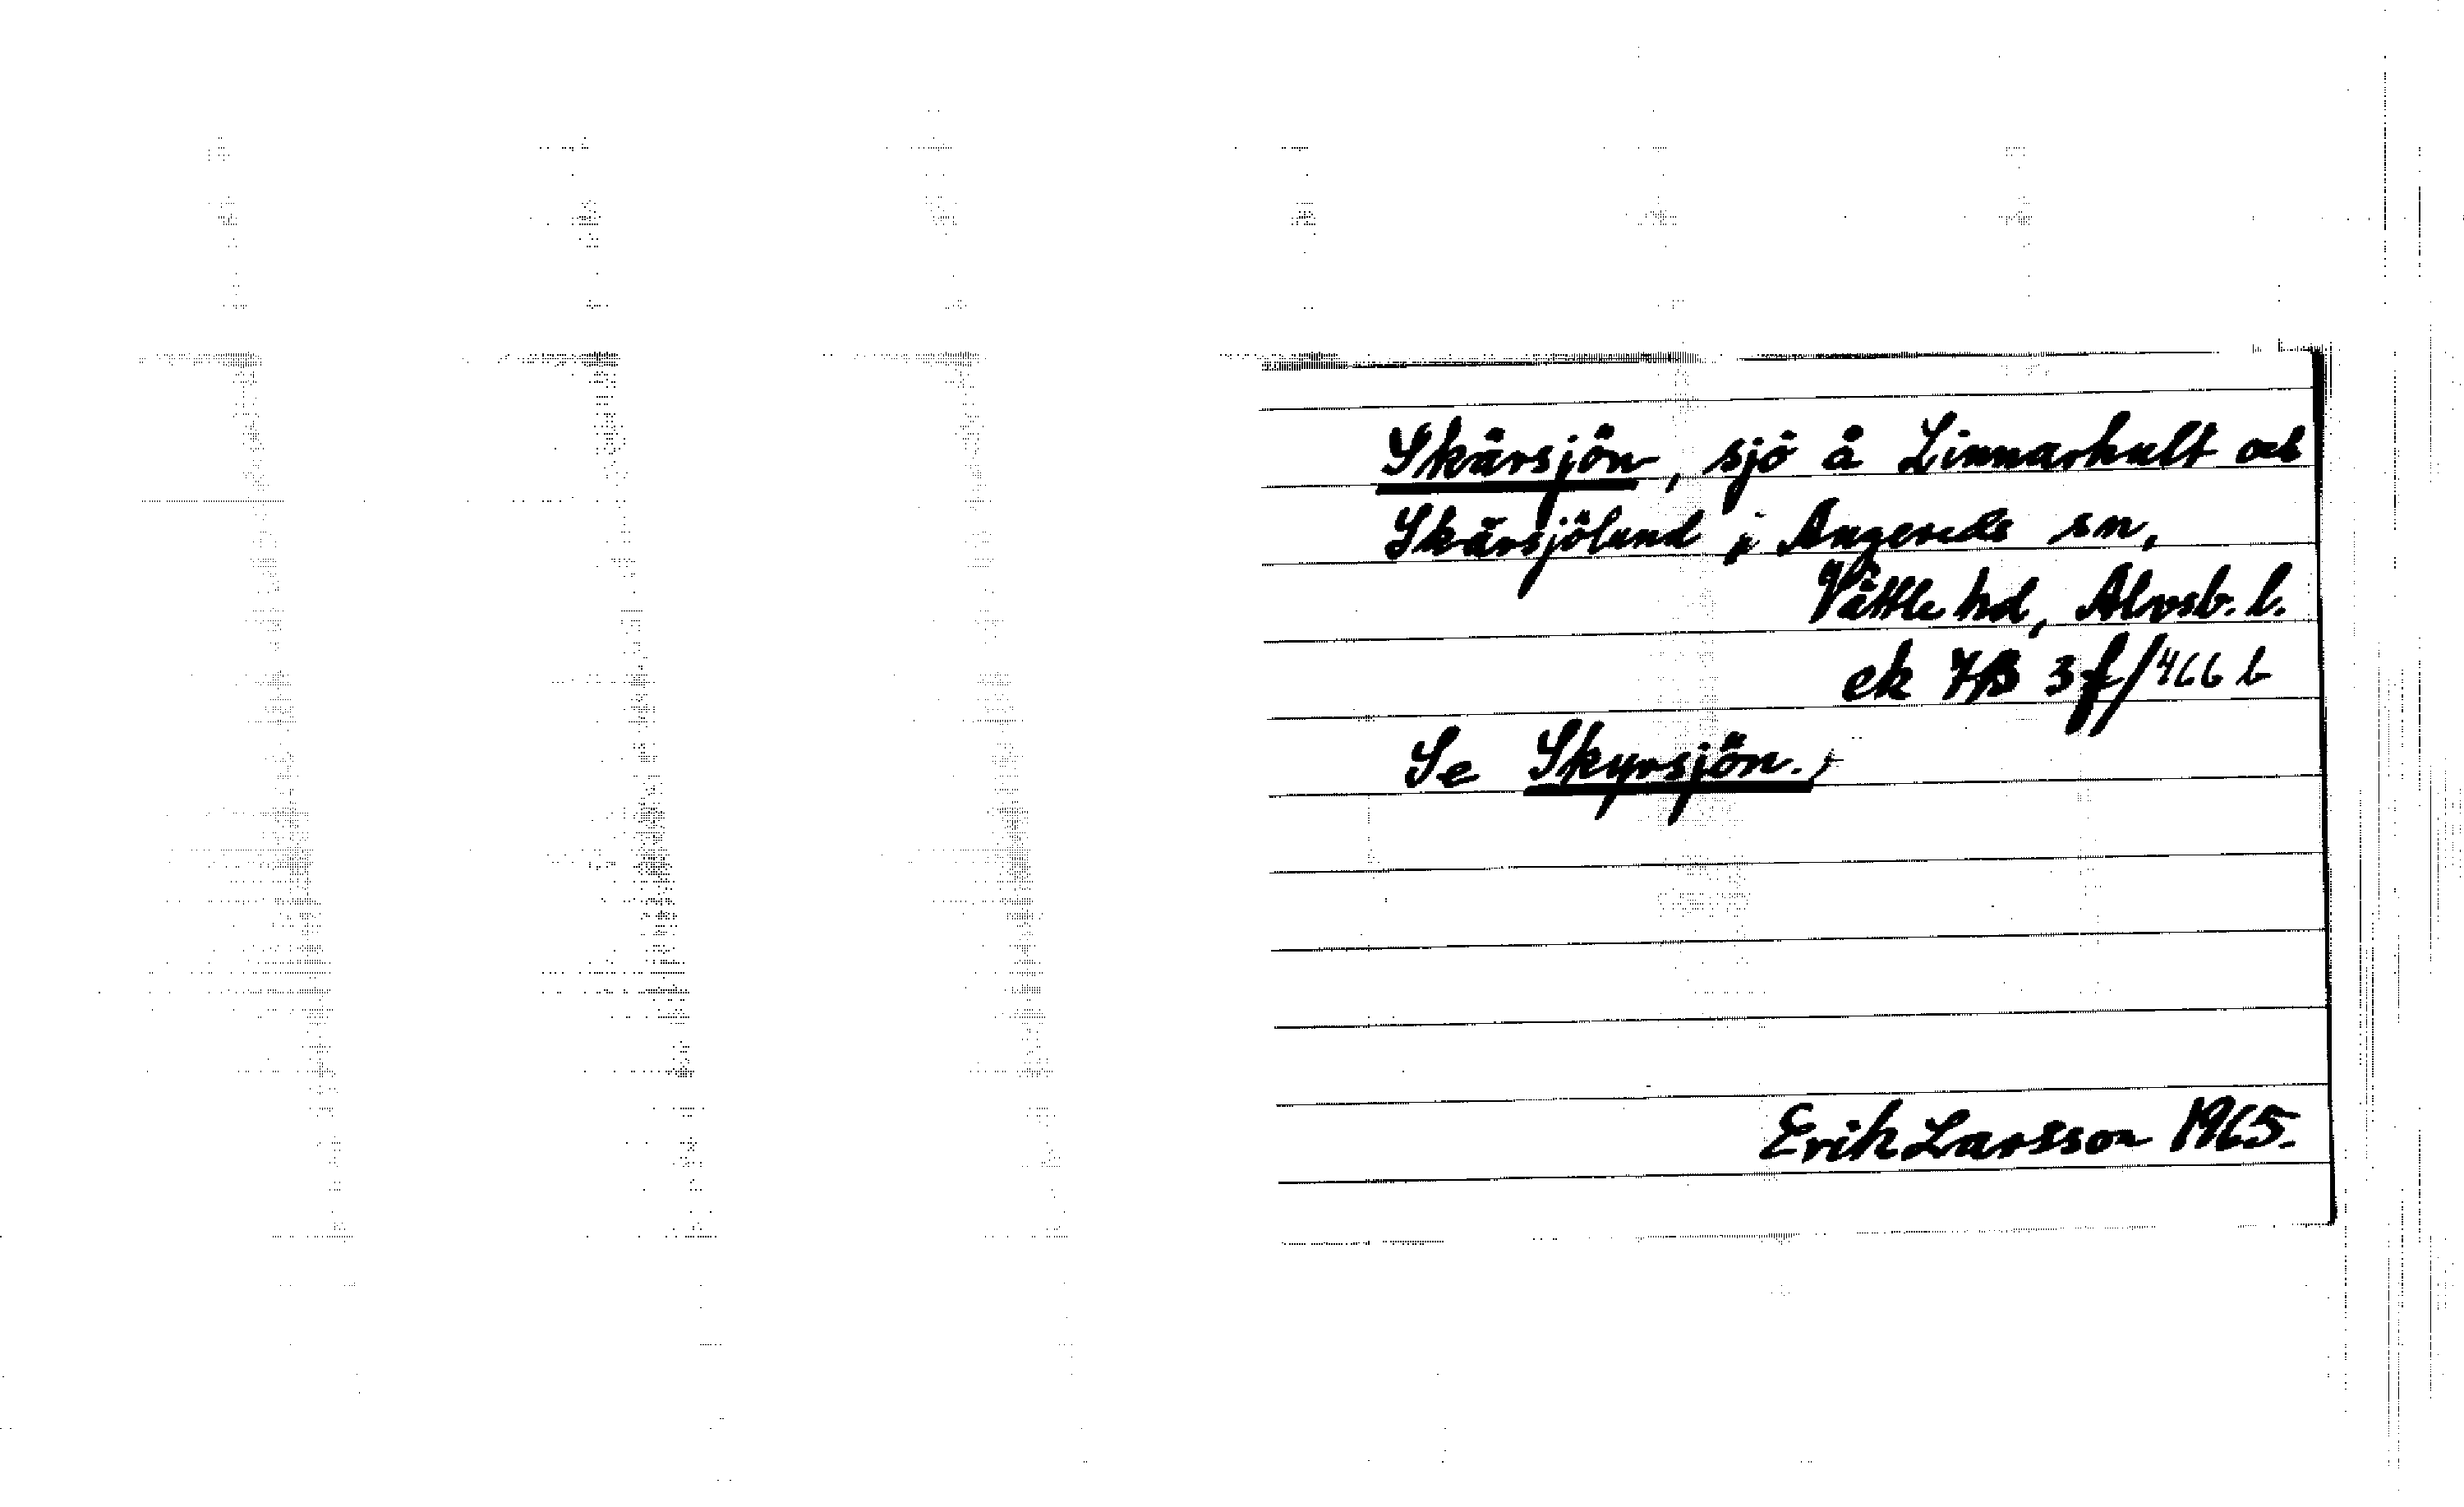 Skärsjön, sjö å Linnarhult och
Skärsjölund i Angereds sn,
Vättle hd, Älvsb. l.
ek 7B 3f/466 b
Se Skyrsjön.
Erik Larsson 1965.